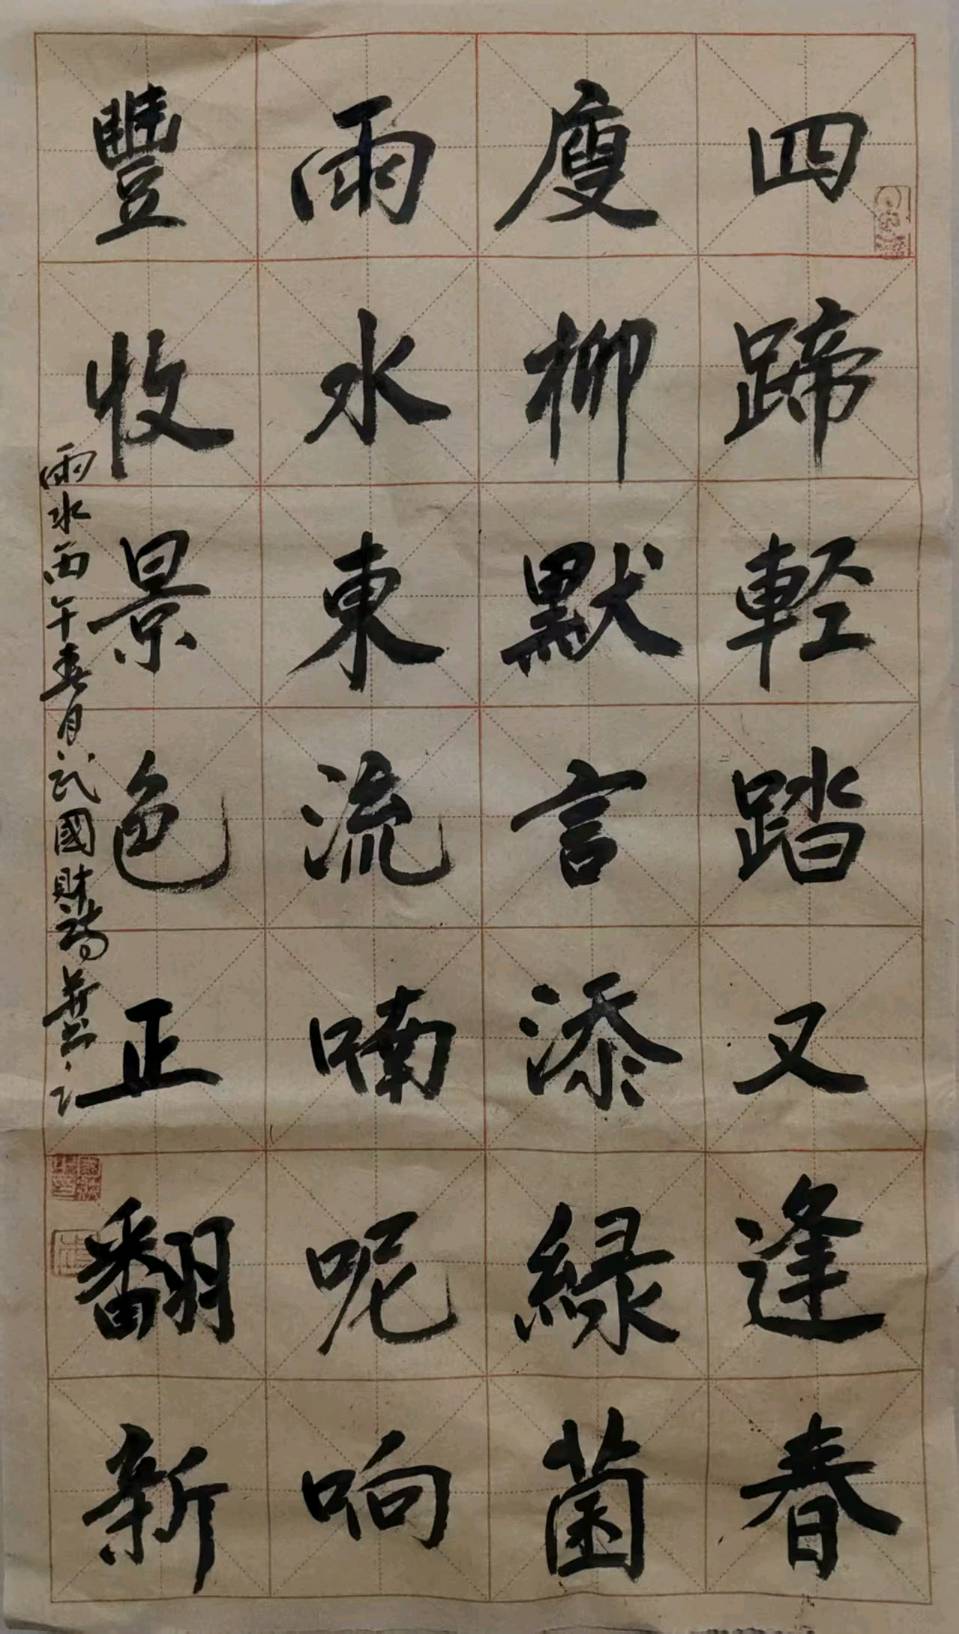 四蹄輕踏又逢春
度柳默言添綠茵
雨水東流喃呢响
豐收景色正翻新
雨水丙午春月武國財詩並書